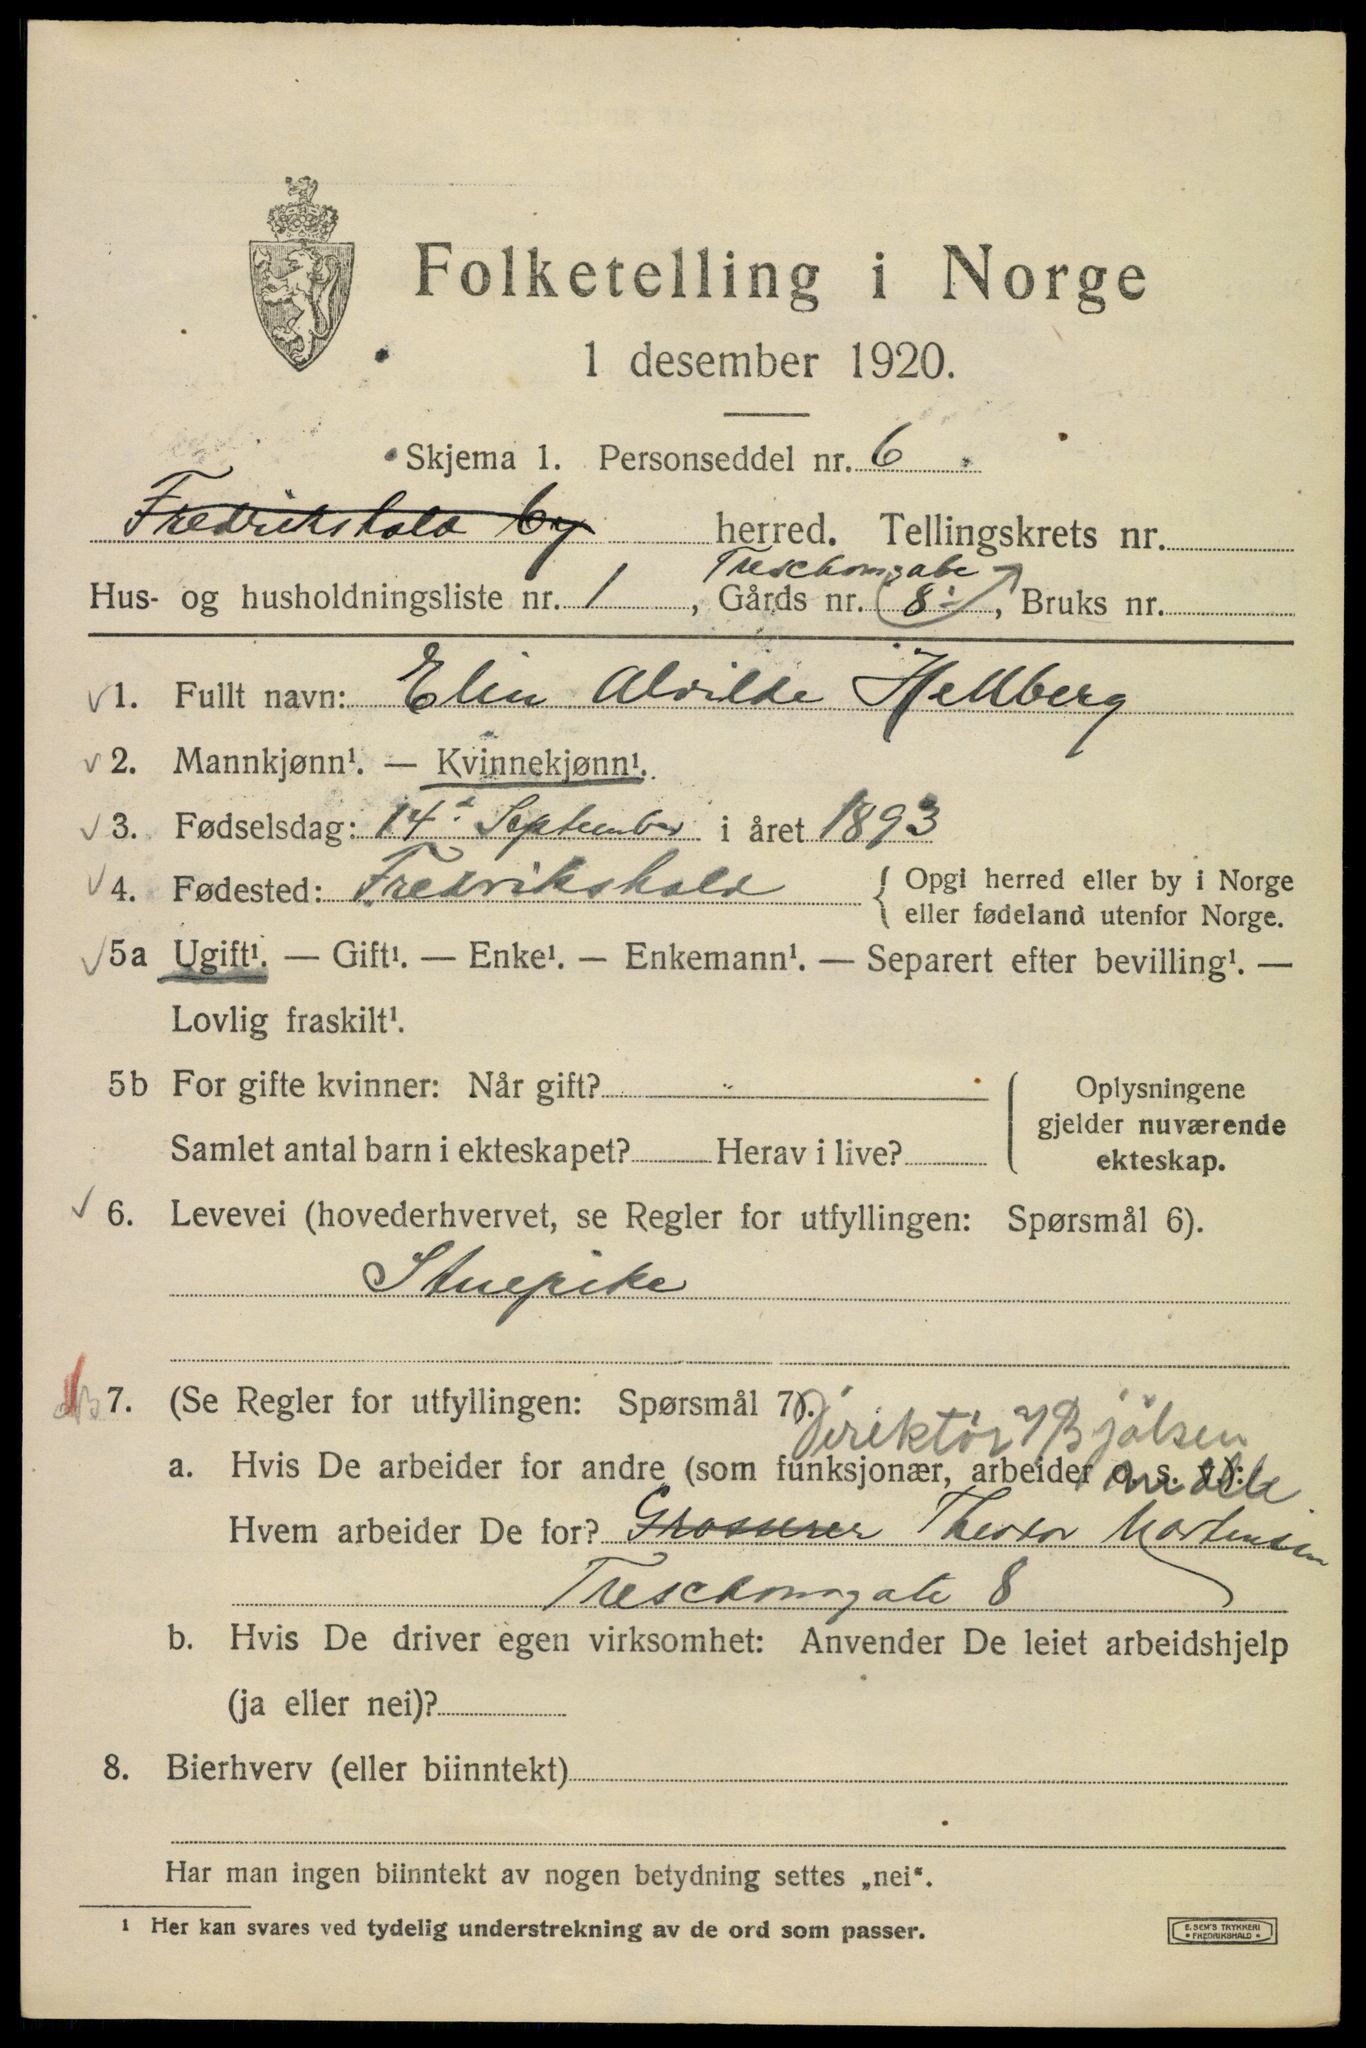 Folketelling i Norge
1 desember 1920.
Skjema 1. Personseddel nr. 6
Fredrikshald by herred. Tellingskrets nr.
Treschowsgate
Hus- og husholdningsliste nr. 1, Gårds nr. 8, Bruks nr.
1. Fullt navn: Elin Alvilde Hellberg
2. Mannkjønn¹. — Kvinnekjønn¹.
3. Fødselsdag: 14de September i året 1893
4. Fødested: Fredrikshald { Opgi herred eller by i Norge
eller fødeland utenfor Norge.
5a Ugift¹. — Gift¹. — Enke¹. — Enkemann¹. — Separert efter bevilling¹. —
Lovlig fraskilt¹.
5b For gifte kvinner: Når gift?
Samlet antal barn i ekteskapet? Herav i live?
Oplysningene
gjelder nuværende
ekteskap.
6. Levevei (hovederhvervet, se Regler for utfyllingen: Spørsmål 6).
Stuepike
7. (Se Regler for utfyllingen: Spørsmål 7).
Direktör v/ Bjölsen
Mölle
a. Hvis De arbeider for andre (som funksjonær, arbeider o. s. v.):
Hvem arbeider De for? Grosserer Theodor Martensen
Treschowsgate 8
b. Hvis De driver egen virksomhet: Anvender De leiet arbeidshjelp
(ja eller nei)?
8. Bierhverv (eller biinntekt)
Har man ingen biinntekt av nogen betydning settes „nei“.
¹ Her kan svares ved tydelig understrekning av de ord som passer.
E. SEM'S TRYKKERI
* FREDRIKSHALD *